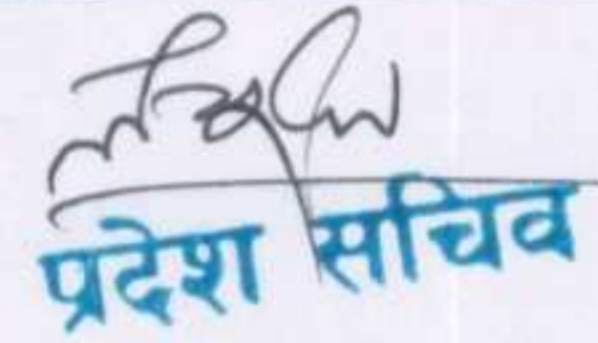 प्रदेश सचिव